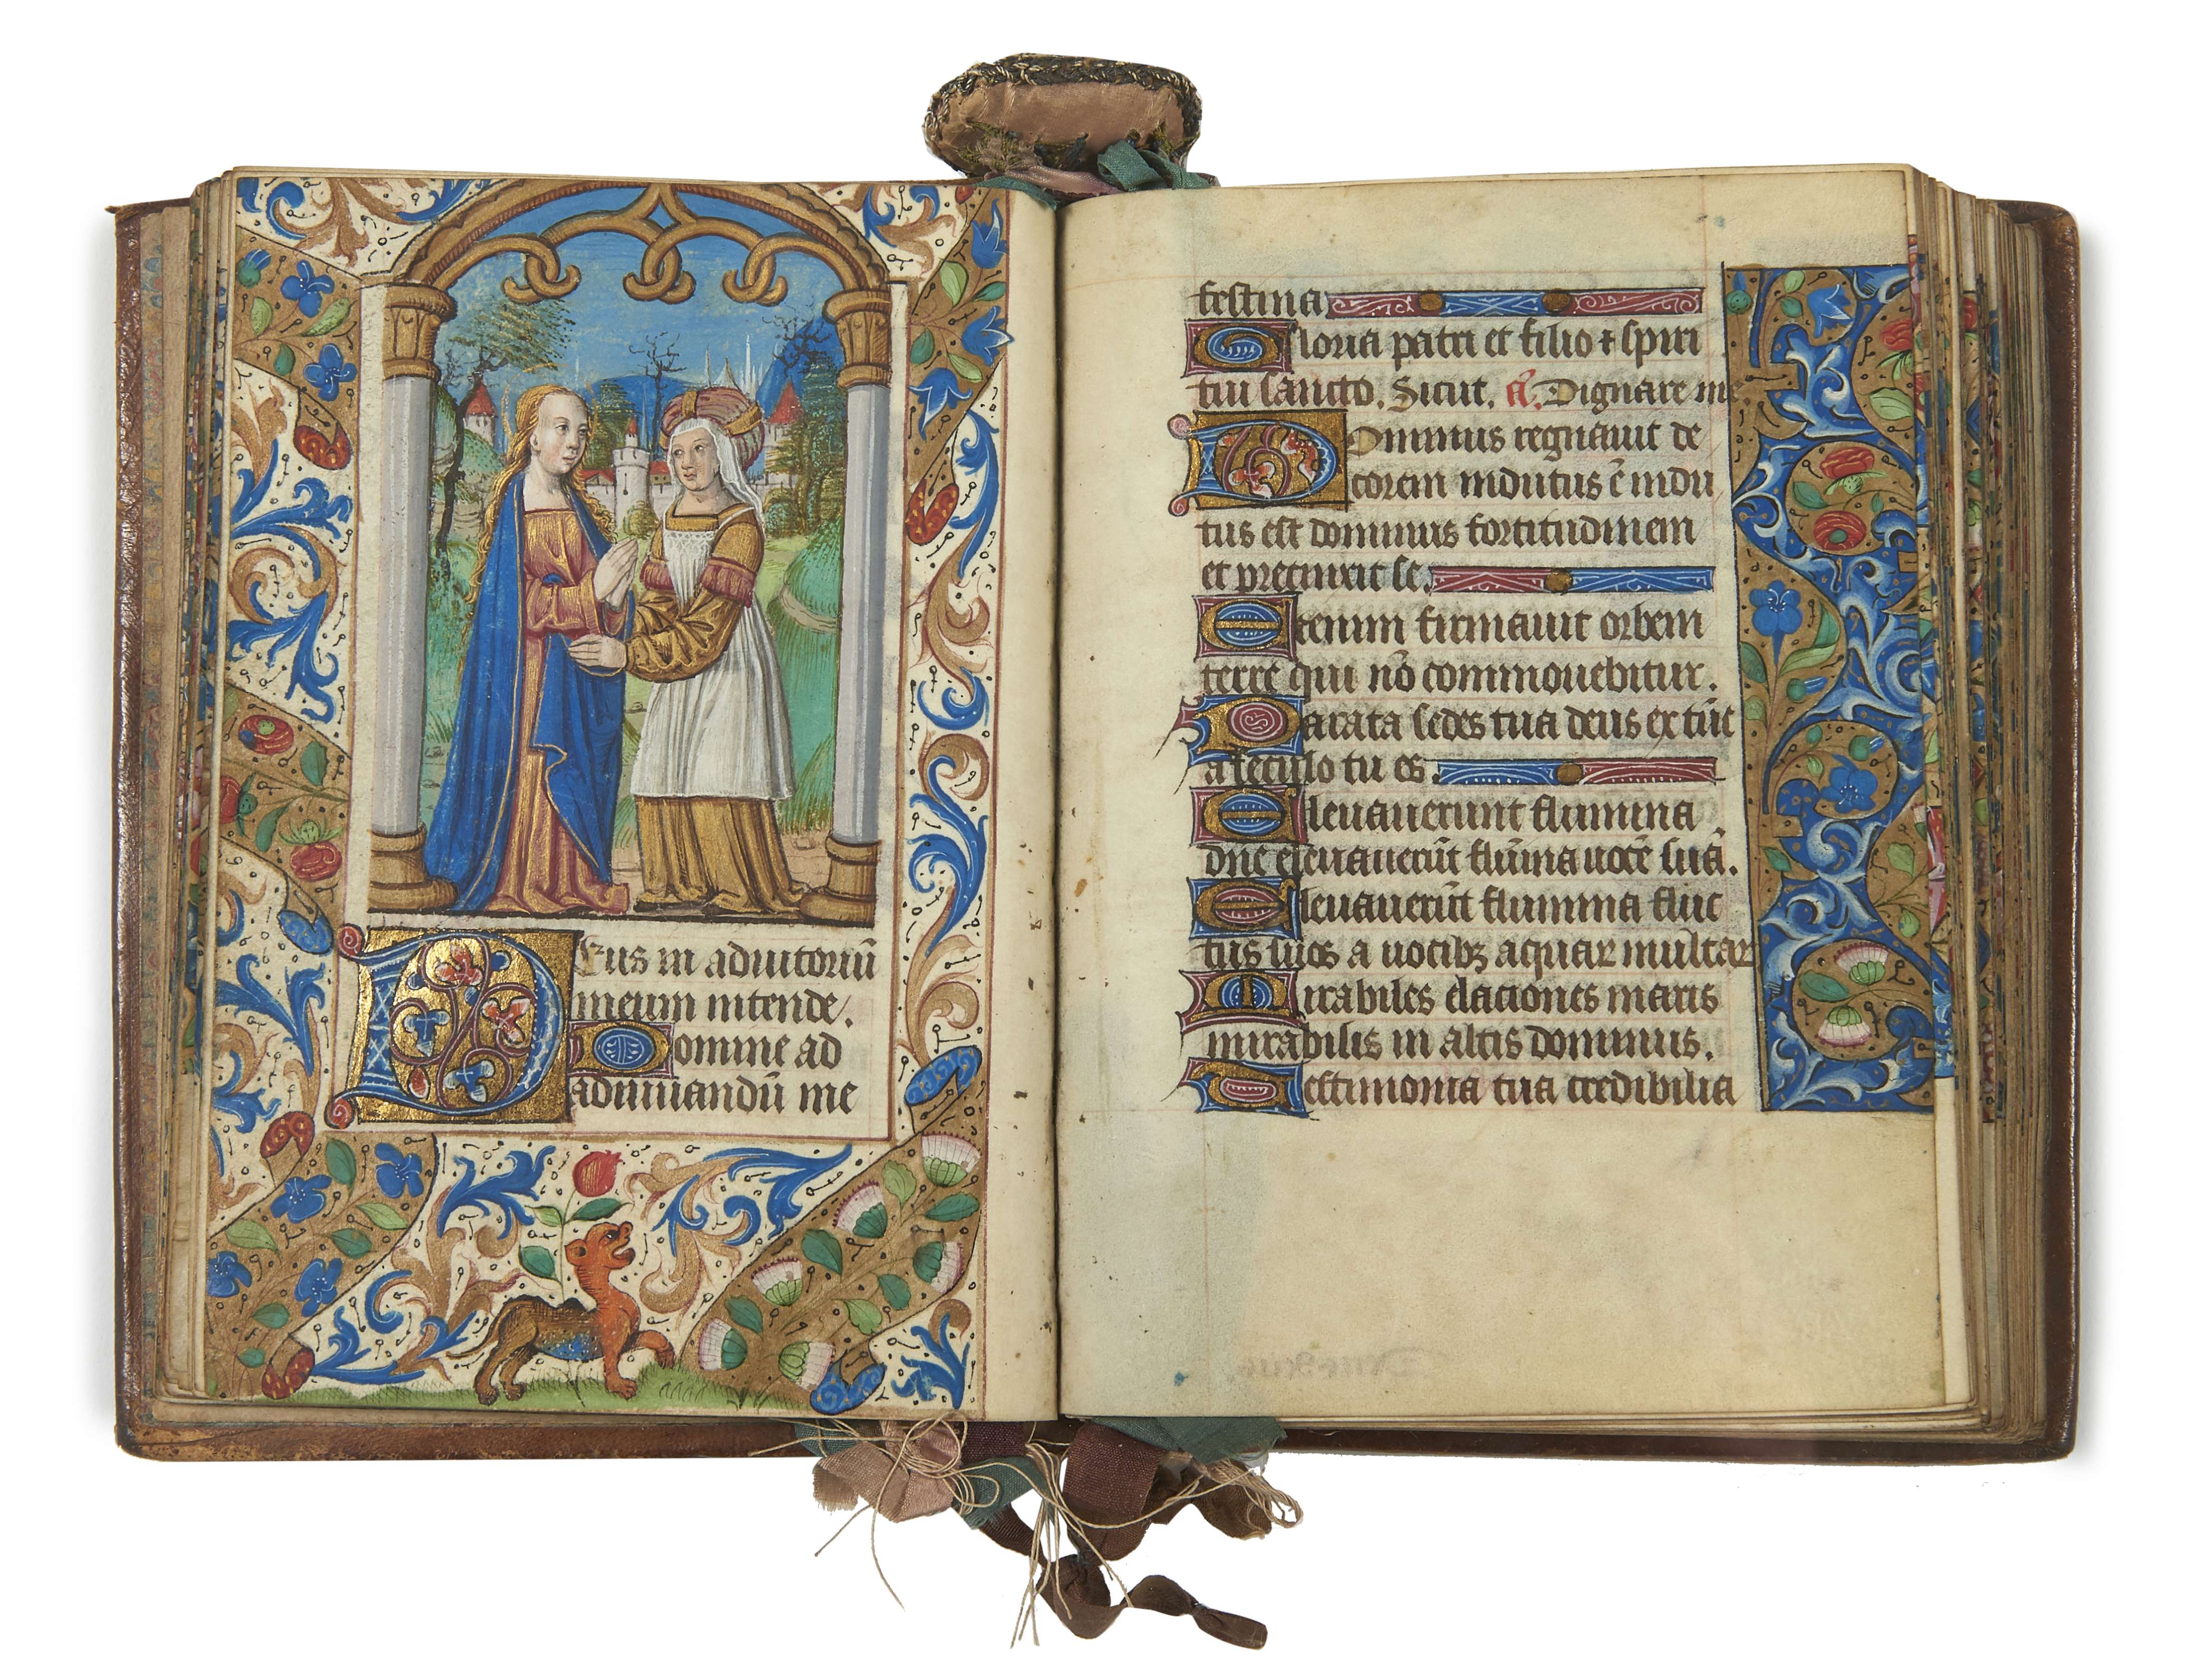 Deus in adiutoriū
meum intende.
Domine ad
adiuuandū me
festina
Gloria patri et filio ⁊ spiri
tui sancto. Sicut. añ. Dignare me.
Dominus regnauit de
corem indutus ē indu
tus est dominus fortitudinem
et precinxit se.
Etenim firmauit orbem
terre qui nō commouebitur.
Parata sedes tua deus ex tūc
a seculo tu es.
Eleuauerunt flumina
dn̄e eleuauerūt flumina uocē suā.
Eleuauerūt flumina fluc
tus suos a uocibꝫ aquaꝝ multaꝝ
Mirabiles elaciones maris
mirabilis in altis dominus.
Testimonia tua credibilia